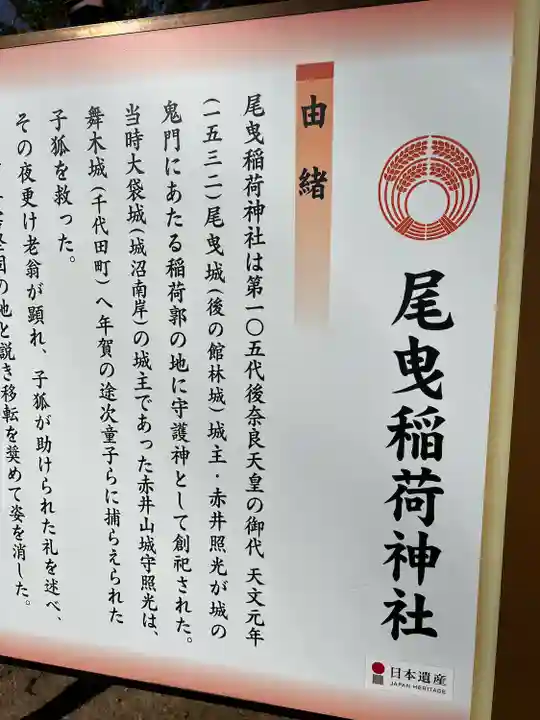 尾曳稲荷神社
日本遺産
JAPAN HERITAGE
由緒
尾曳稲荷神社は第一〇五代後奈良天皇の御代 天文元年
(一五三二)尾曳城(後の館林城)城主・赤井照光が城の
鬼門にあたる稲荷郭の地に守護神として創祀された。
当時大袋城(城沼南岸)の城主であった赤井山城守照光は、
舞木城(千代田町)へ年賀の途次童子らに捕らえられた
子狐を救った。
その夜更け老翁が顕れ、子狐が助けられた礼を述べ、
の地と説き移転を奨めて姿を消した。